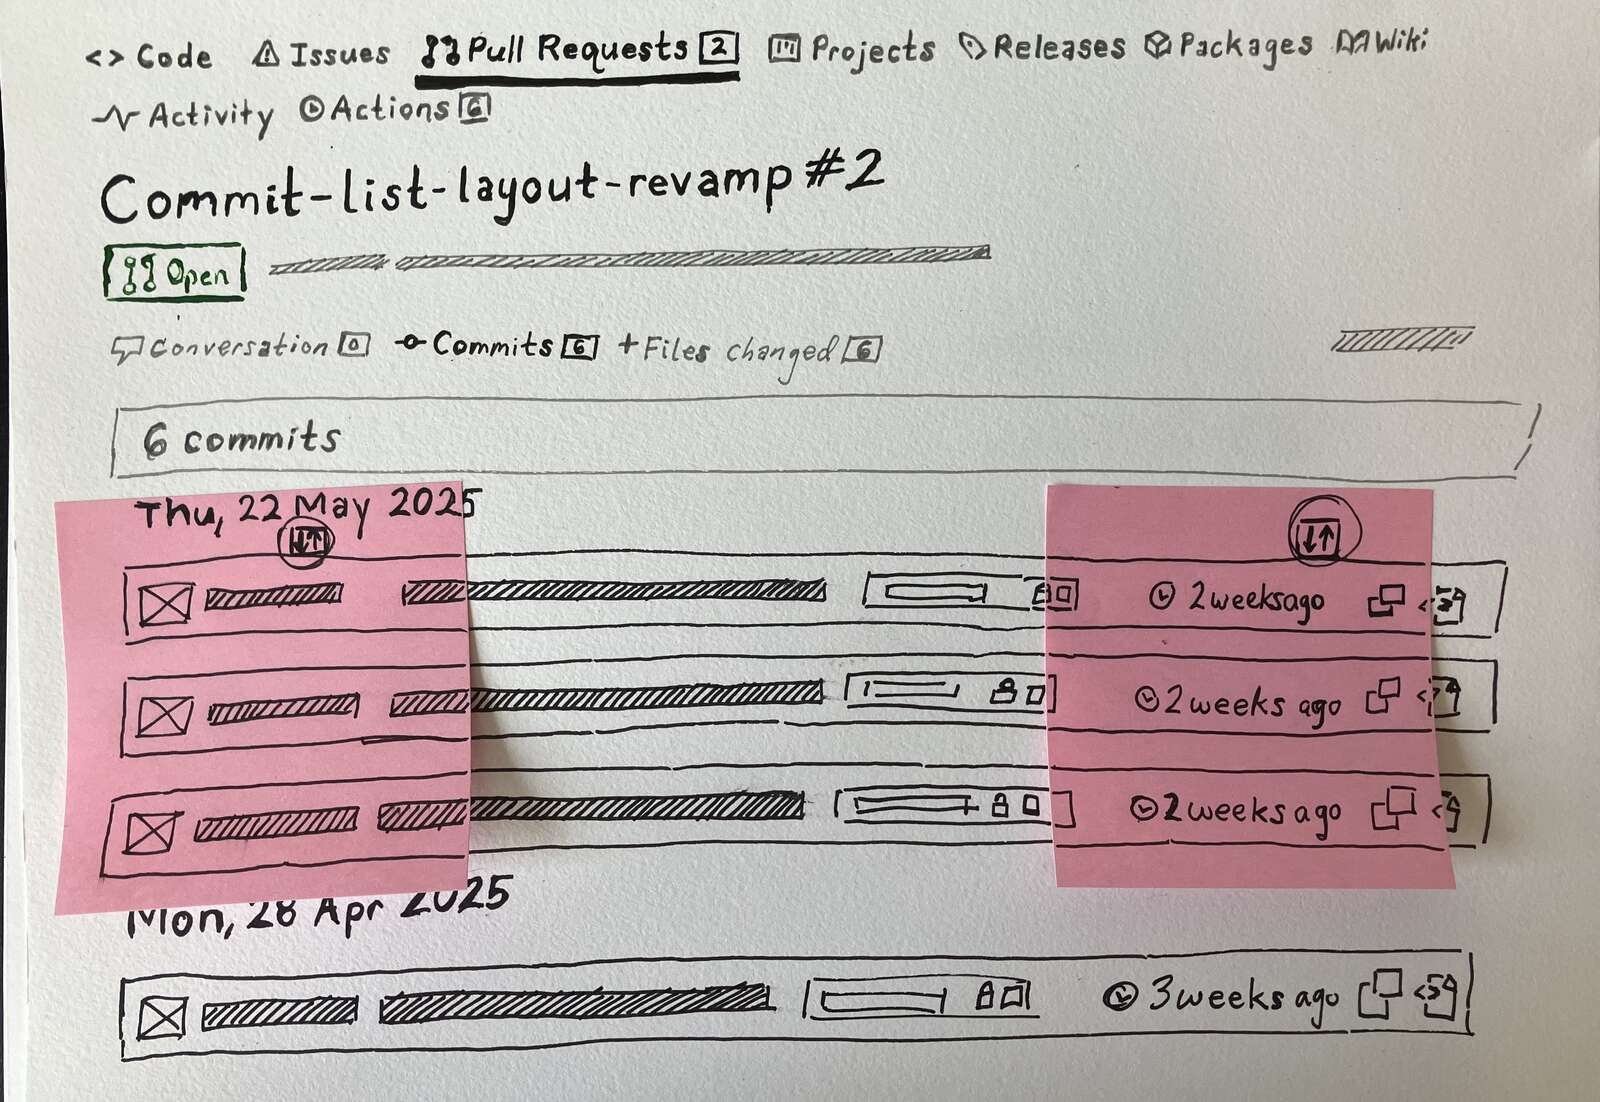 <> Code Issues Pull Requests 2 Projects Releases Packages Wiki
Activity Actions 6
Commit-list-layout-revamp #2
Open
Conversation 0 Commits 6 + Files changed 6
6 commits
Thu, 22 May 2025
↓↑ ↓↑
2 weeks ago
2 weeks ago
2 weeks ago
Mon, 28 Apr 2025
3 weeks ago